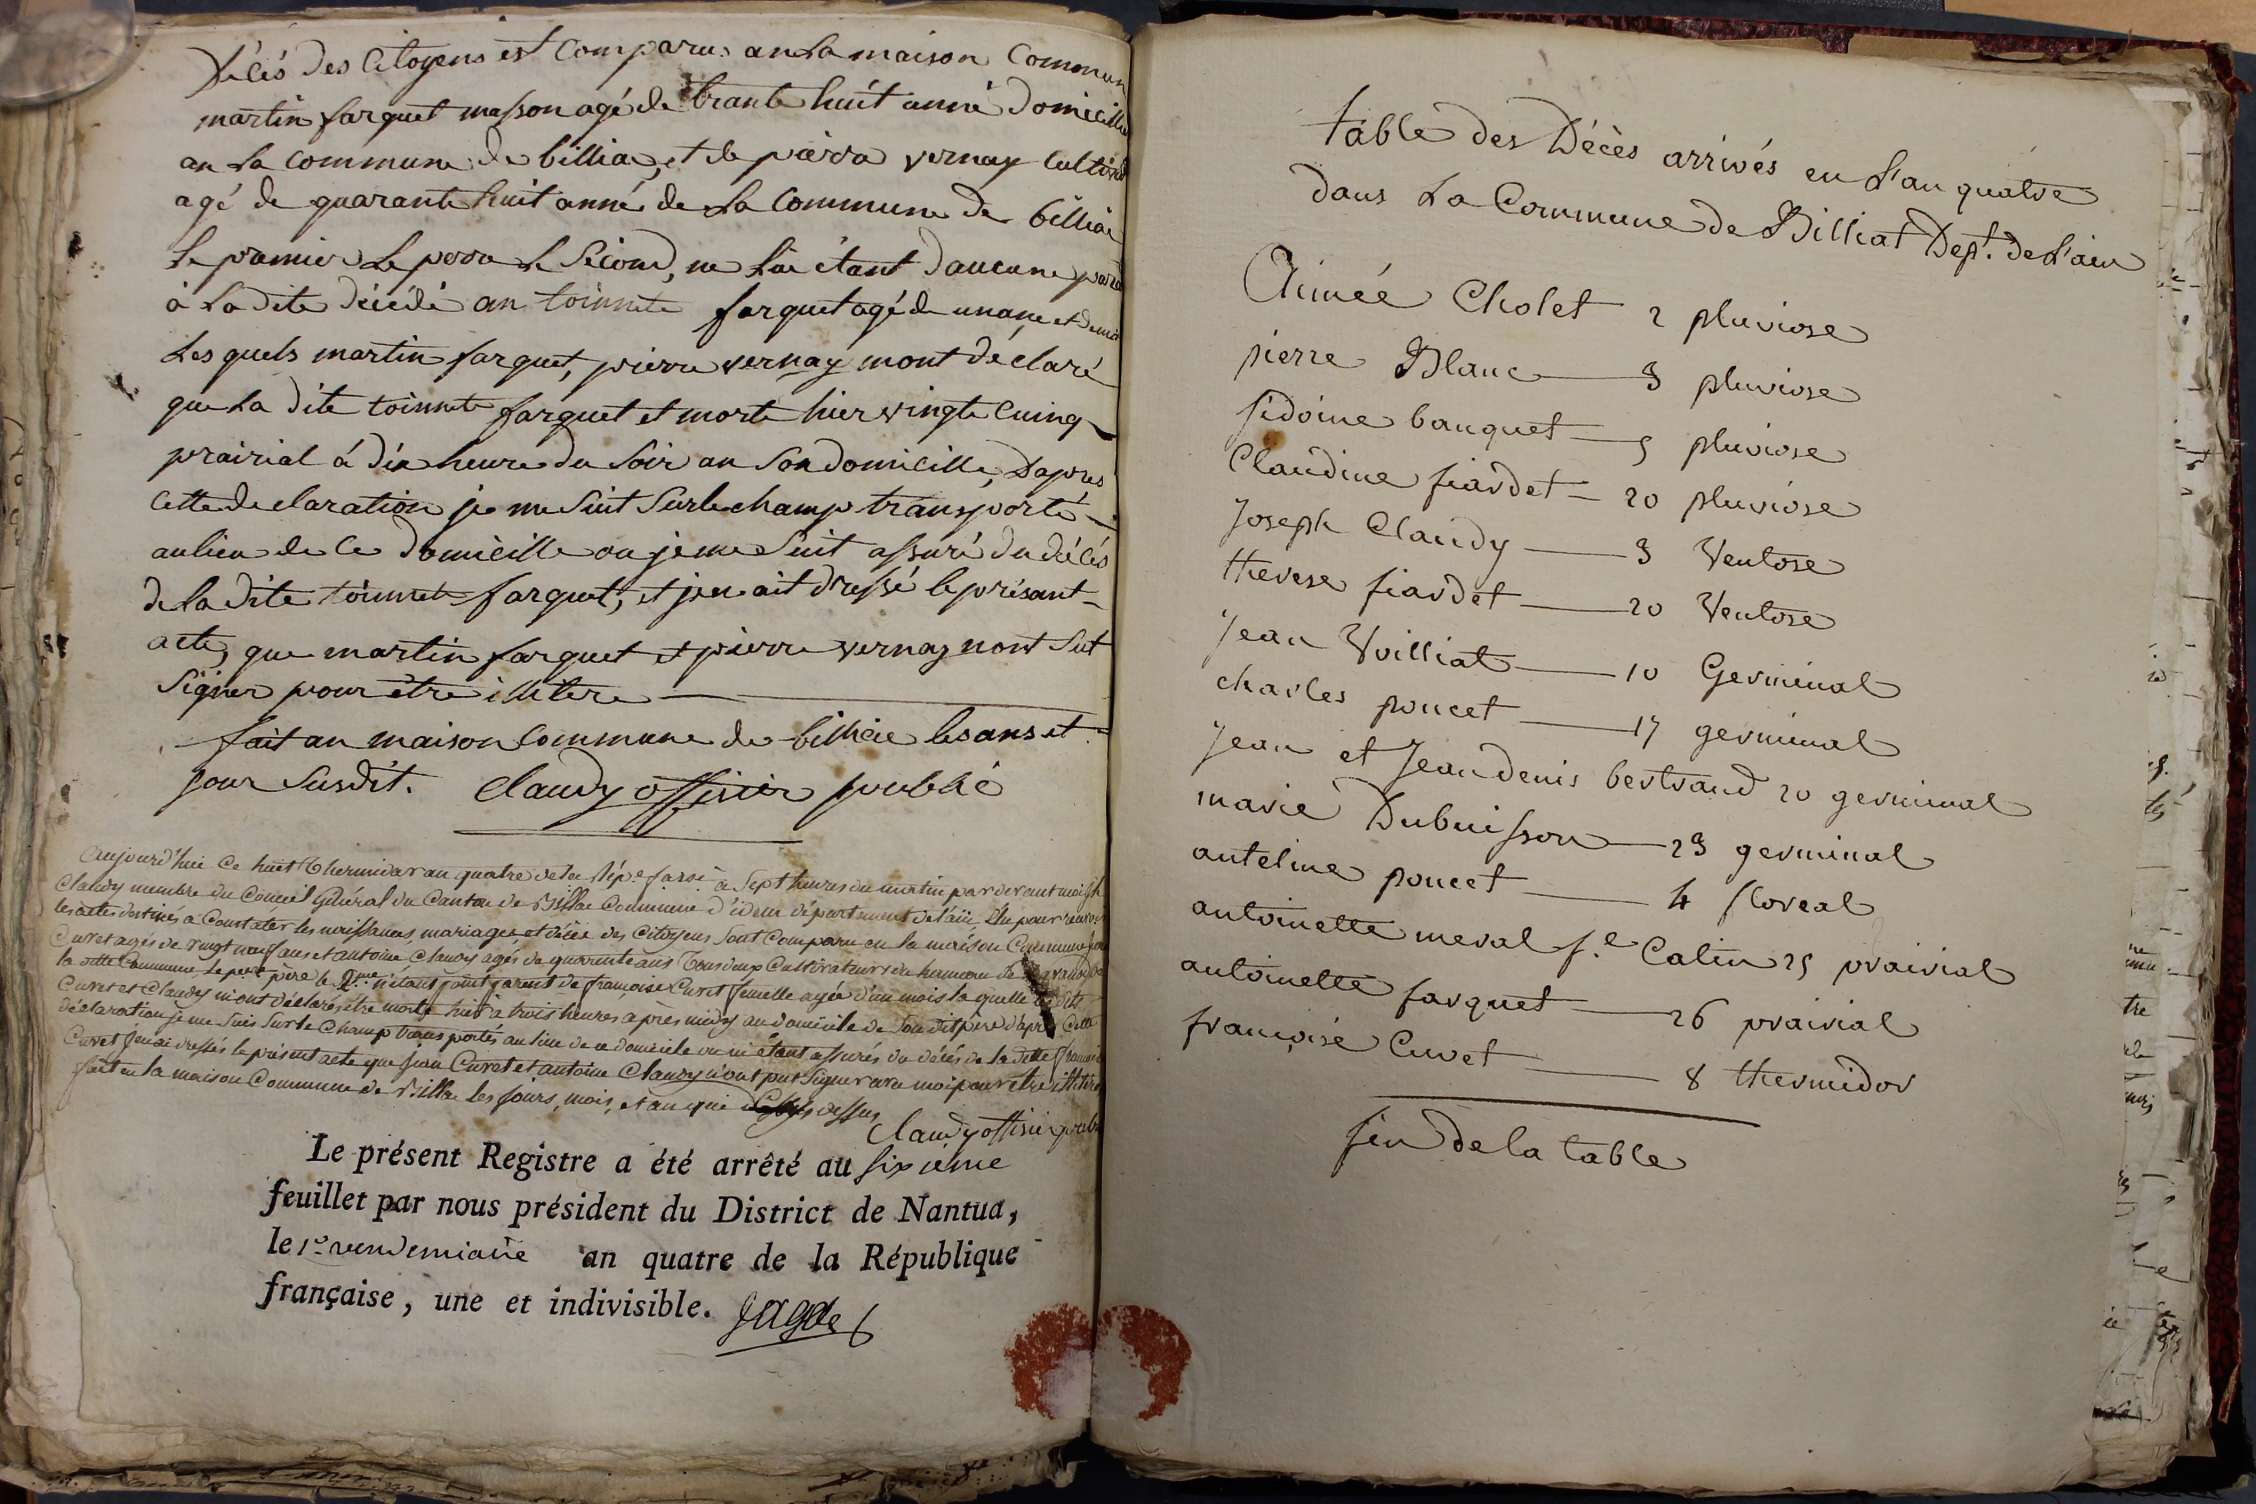 décés des Citoyens est Comparus an La maison Commun
martin farquet masson agé de trante huit anné Domicillie
an La Commune de billiae, et de pierra vernay Cultiv
agé de quarante huit anné de La Commune de billiae
Le pramier Le pera Le Sicond, ne Lui étant Daucune para
à La dite décédé an toinnete farquet agé de unanné et demi
Les quels martin farquet, pierra vernay mont déclaré
que La dite toinnete farquet et morte hier vingte Cuinq
prairial á dix heure du Soir an Son domicille, Dapres
Cette de claration je me Suit Surlechamp transporté
aulieu de Ce domicille ou je me Suit assuré du décés
de La dite toinnete farquet, et jen ait dressé le présant
acte, que martin farquet et pierre vernay nont Sut
Signer pour être illitere
fait an maison Commune de billiae les ans et
jour Susdit. Claudy offisier publié
aujourd'hui Ce huit Thermidor an quatre de la Rép.e fasse à Sept heures du matin par devant moi
Claudy membre du Conseil Général du Canton de Billia Commune d'idem département de l'ain, Elu pour recevoir
les actes destinés a Constater les naissances, mariages, et décès des Citoyens Sont Comparu en la maison Commune
Curet agés de vingt neuf ans et antoine Claudy agés de quarante ans Tous deux Cultivateurs du hameau de
la ditte Commune, le père le 2.me n'étant point parent de françoise Curet femelle agée d'un mois la quelle
Curet et Claudy m'ont déclarés être morte hier à trois heures après midy au domicile de Son dit père d'après Cette
déclaration je me Suis Sur le Champ transportés au lieu de ce domicile ou m'étant assurés du décés de la ditte
Curet j'en ai dressés le présent acte que jean Curet et antoine Claudy n'ont put Signer avec moi pour etre illitere
fait en la maison Commune de Billia les jours, mois, et an que dessus
Claudy offisier public
Le présent Registre a été arrêté au sixieme
feuillet par nous président du District de Nantua,
le 1er vendemiaire an quatre de la République
française, une et indivisible.
table des Décès arrivés en L'an quatre
dans La Commune de Billiat Dept. de L'ain
Aimée Cholet 2 pluviose
pierre Blanc 3 pluviose
sidoine banquet 5 pluviose
Claudine fiardet 20 pluviose
Joseph Claudy 3 Ventose
therese fiardet 20 Ventose
Jean Vuilliat 10 Germinal
charles poncet 17 germinal
Jean et Jean denis bertrand 20 germinal
marie Dubuisson 23 germinal
antelme poncet 4 floreal
antoinette meval f.e Calin 25 prairial
antoinette farquet 26 prairial
françoise Curet 8 thermidor
fin de la table